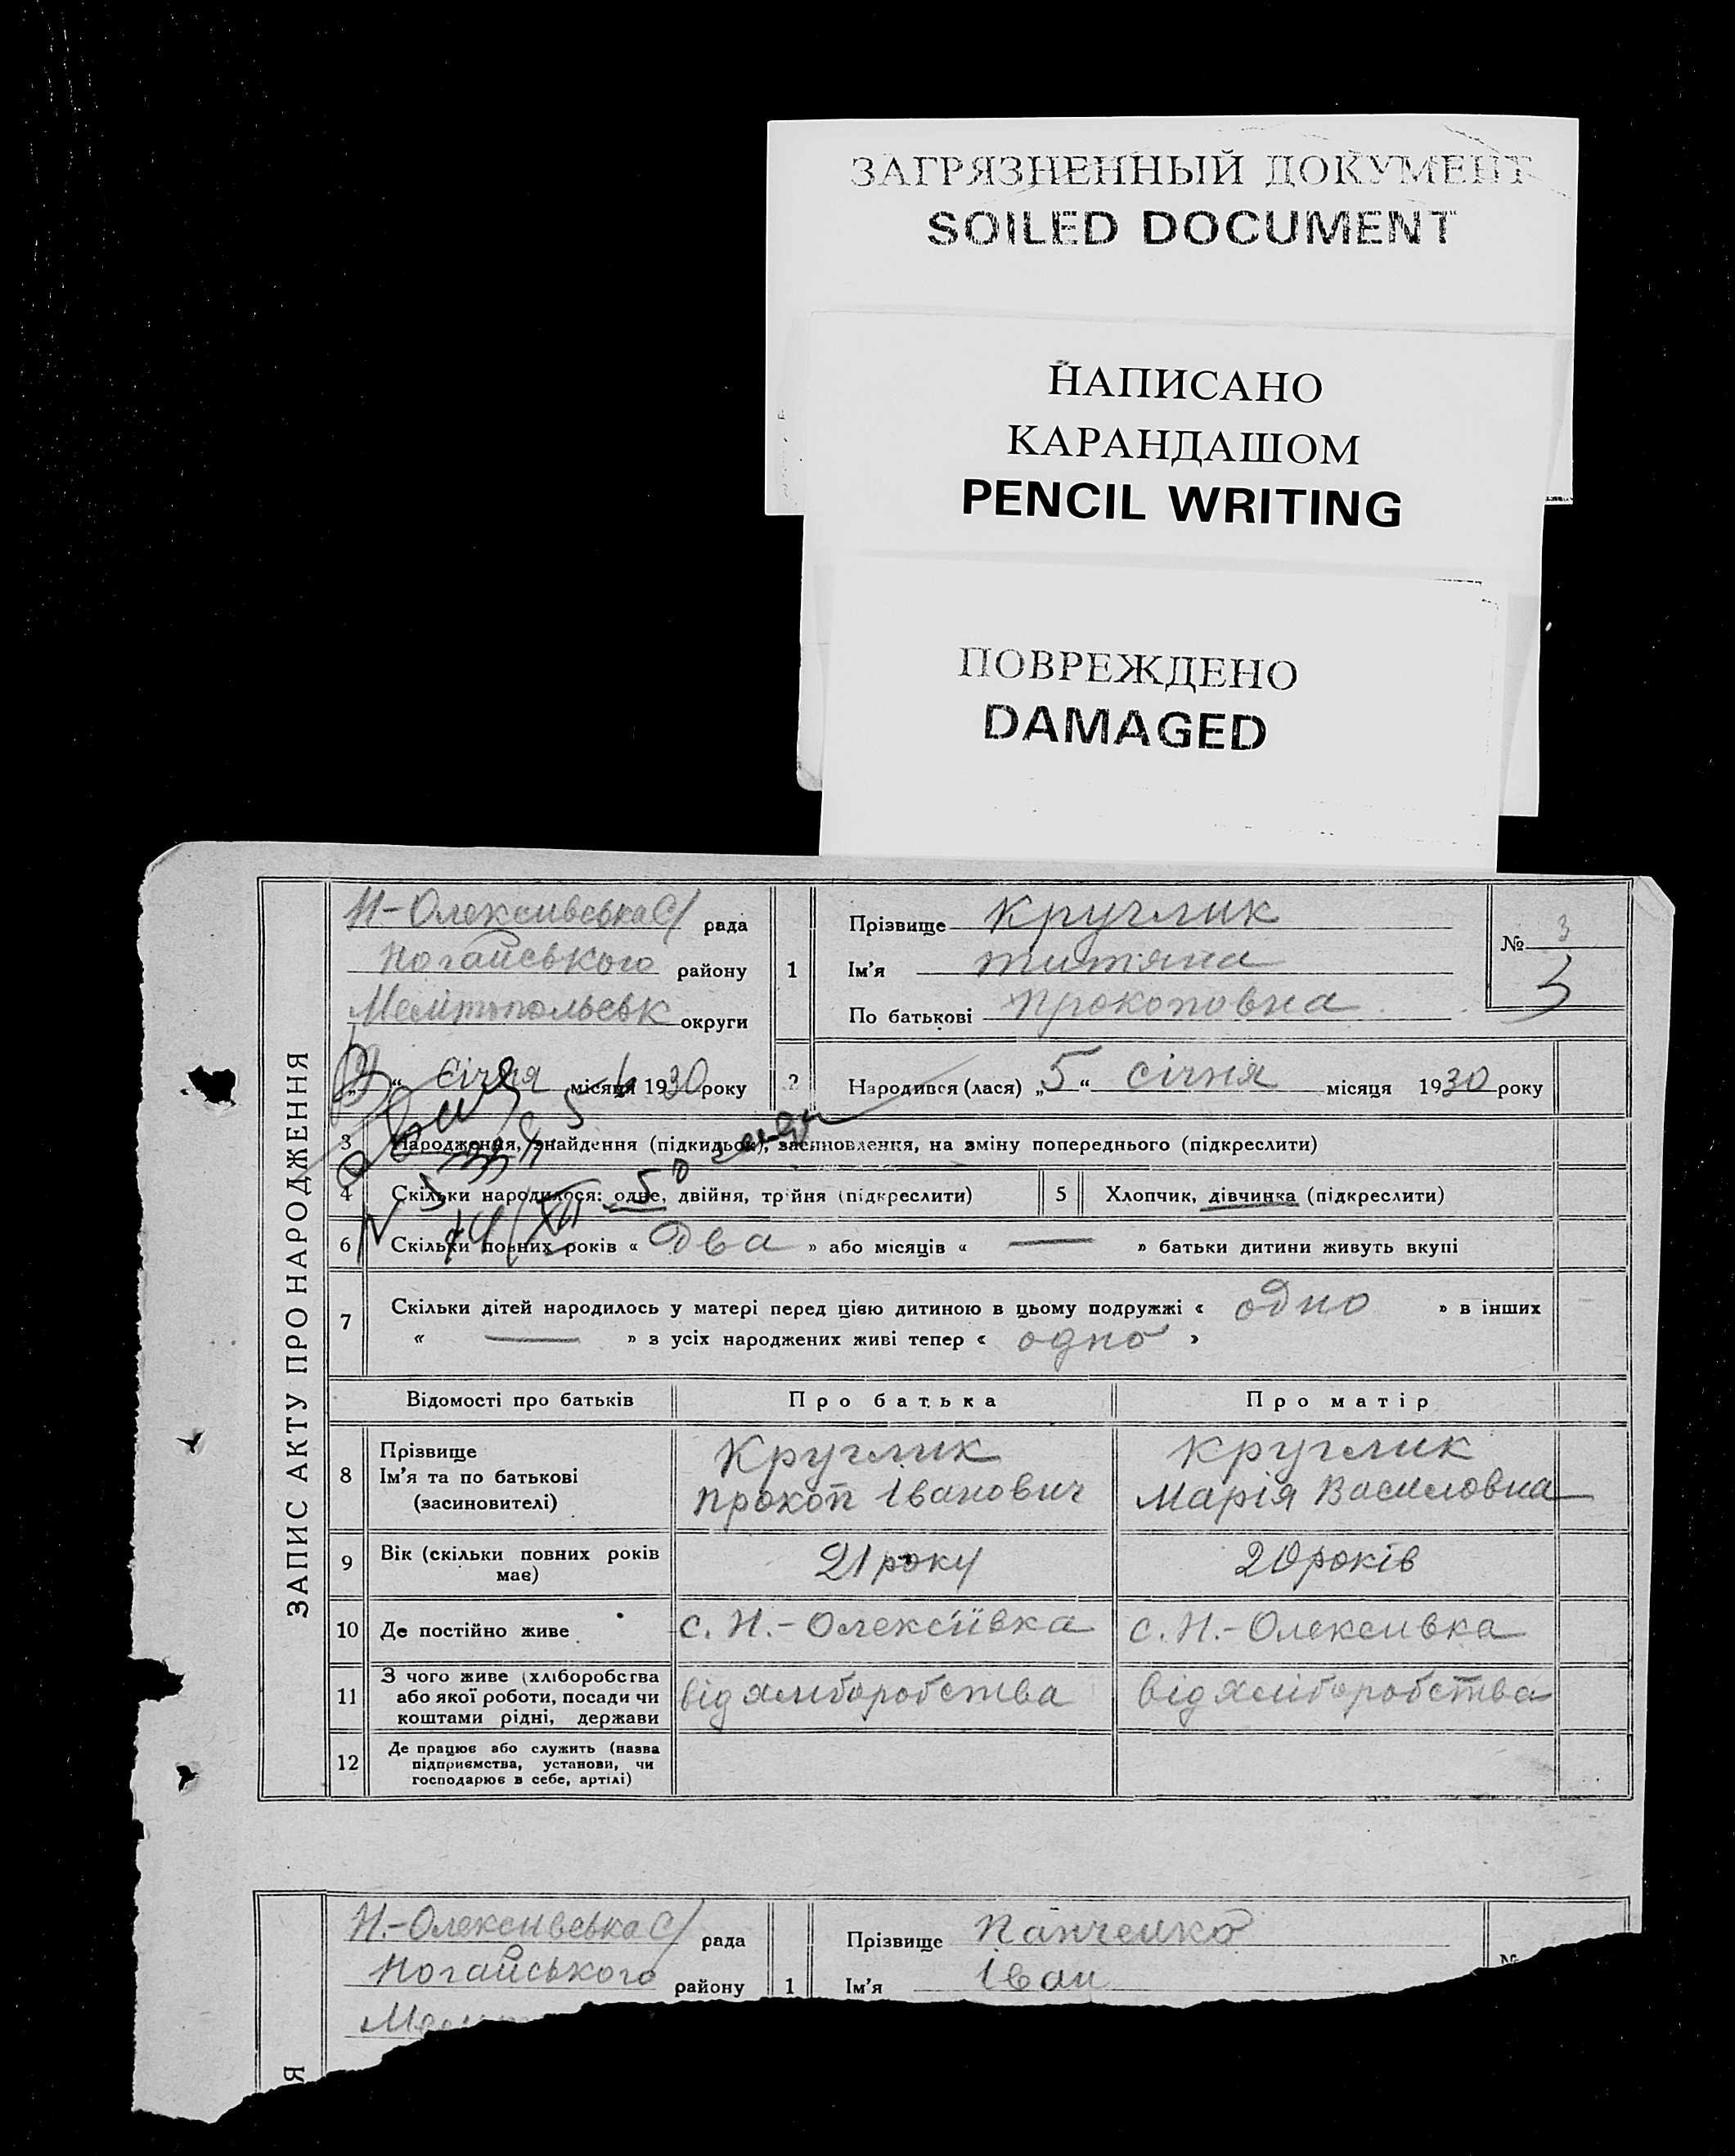 ЗАГРЯЗНЕННЫЙ ДОКУМЕНТ
SOILED DOCUMENT
НАПИСАНО
КАРАНДАШОМ
PENCIL WRITING
ПОВРЕЖДЕНО
DAMAGED
ЗАПИС АКТУ ПРО НАРОДЖЕННЯ
Н-Олексиівська С/ рада
Ногайського району
Мелітопольськ округи
" січня місяця 1930 року
1
Прізвище Круглик
Ім'я титяна
По батькові прокоповна
№ 3
3
2 Народився (лася) „5" січня місяця 1930 року
3 Народження, знайдення (підкидьок), засиновлення, на зміну попереднього (підкреслити)
4 Скільки народилося: одне, двійня, трійня (підкреслити)
5 Хлопчик, дівчинка (підкреслити)
N 5 14/XII
6 Скільки повних років « Два » або місяців « — » батьки дитини живуть вкупі
7 Скільки дітей народилось у матері перед цією дитиною в цьому подружжі « одно » в інших
« — » з усіх народжених живі тепер « одно »
Відомості про батьків Про батька Про матір
8 Прізвище
Ім'я та по батькові
(засиновителі)
Круглик
прокоп Іванович
круглик
Марія Василовна
9 Вік (скільки повних років
має)
21 року
20 років
10 Де постійно живе
с. Н.-Олексіївка
с. Н.-Олексиівка
11 З чого живе (хліборобства
або якої роботи, посади чи
коштами рідні, держави
від хліборобства
від хліборобства
12 Де працює або служить (назва
підприємства, установи, чи
господарює в себе, артілі)
Н.-Олексиівська С/ рада
Ногайського району
1
Прізвище Панченко
Ім'я Іван
№
Я